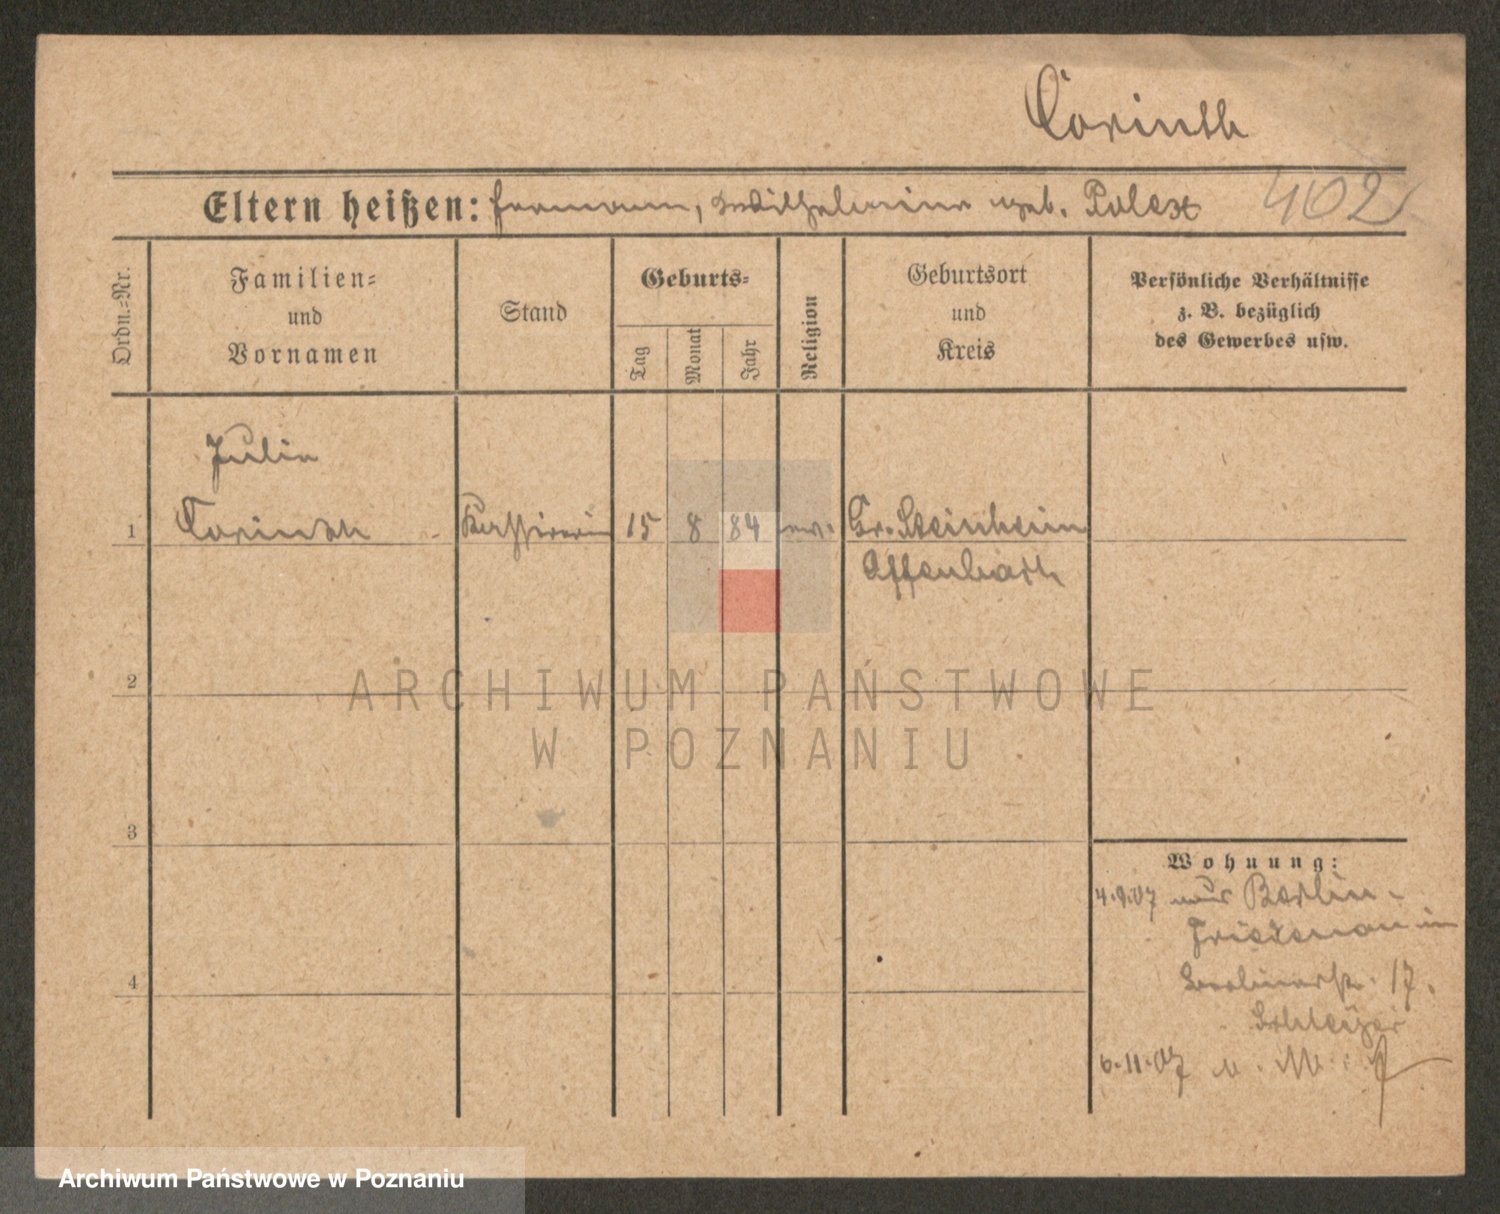 Corinth
Eltern heißen: Hermann, Wilhelmine geb. Polex
402
Ordn.-Nr.
Familien-
und
Vornamen
Stand
Geburts-
Tag
Monat
Jahr
Religion
Geburtsort
und
Kreis
Persönliche Verhältnisse
z. B. bezüglich
des Gewerbes usw.
Julie
1 Corinth Kassirerin 15 8 84 ev. Gr. Steinheim
Offenbach
2
ARCHIWUM PAŃSTWOWE
W POZNANIU
3
Wohnung:
4.9.07 Berlin-
Friedenau
4
17.
6.11.07
Archiwum Państwowe w Poznaniu